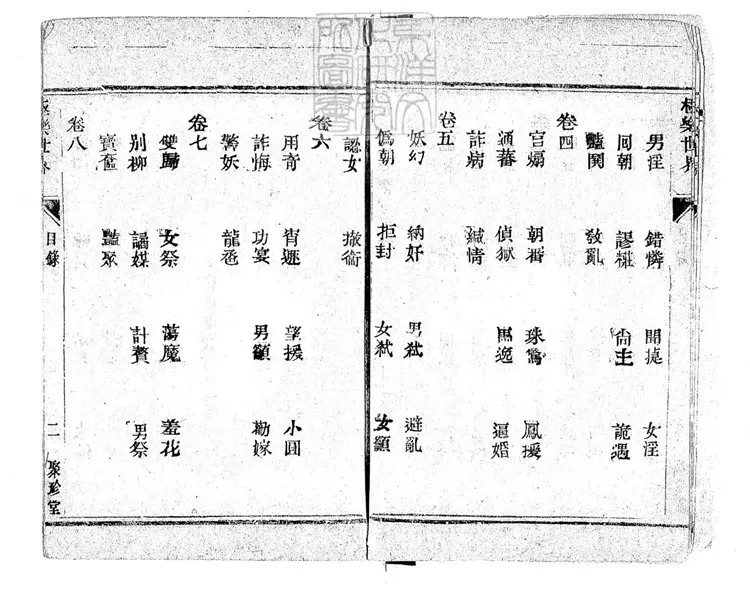 極樂世界
男淫 錯憐 鬧虔 女淫
同朝 謬糚 尙主 詭遇
豔閧 敎亂
卷四
宮煽 朝番 珠驚 鳳援
通蕃 偵獄 馬逸 逼婚
詐病 緘情
卷五
妖幻 納奸 男弒 避亂
僞朝 拒封 女弒 女顲
認女 撤
卷六
用奇 宵遯 望援 小圓
詐悔 功宴 男顲 勸嫁
警妖 龍
卷七
雙歸 女祭 蕩魔 羞花
别柳 謁媒 計賚 男祭
寶奩 豔聚
卷八
極樂世界
目錄
二 聚珍堂